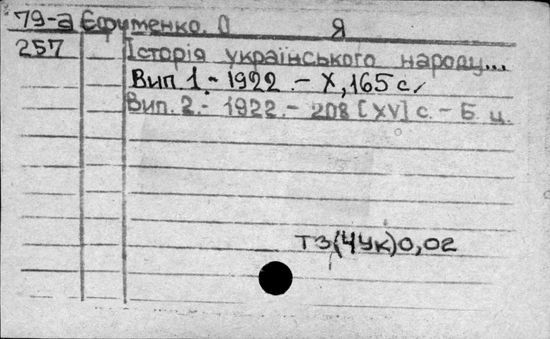 79-а Єфименко. О Я
257 Історія українського народу...
Вип. 1.- 1922. - X, 165 с.
Вип. 2.- 1922.- 208 [XV] с. - Б. ц.
ТЗ(4Ук)0,02